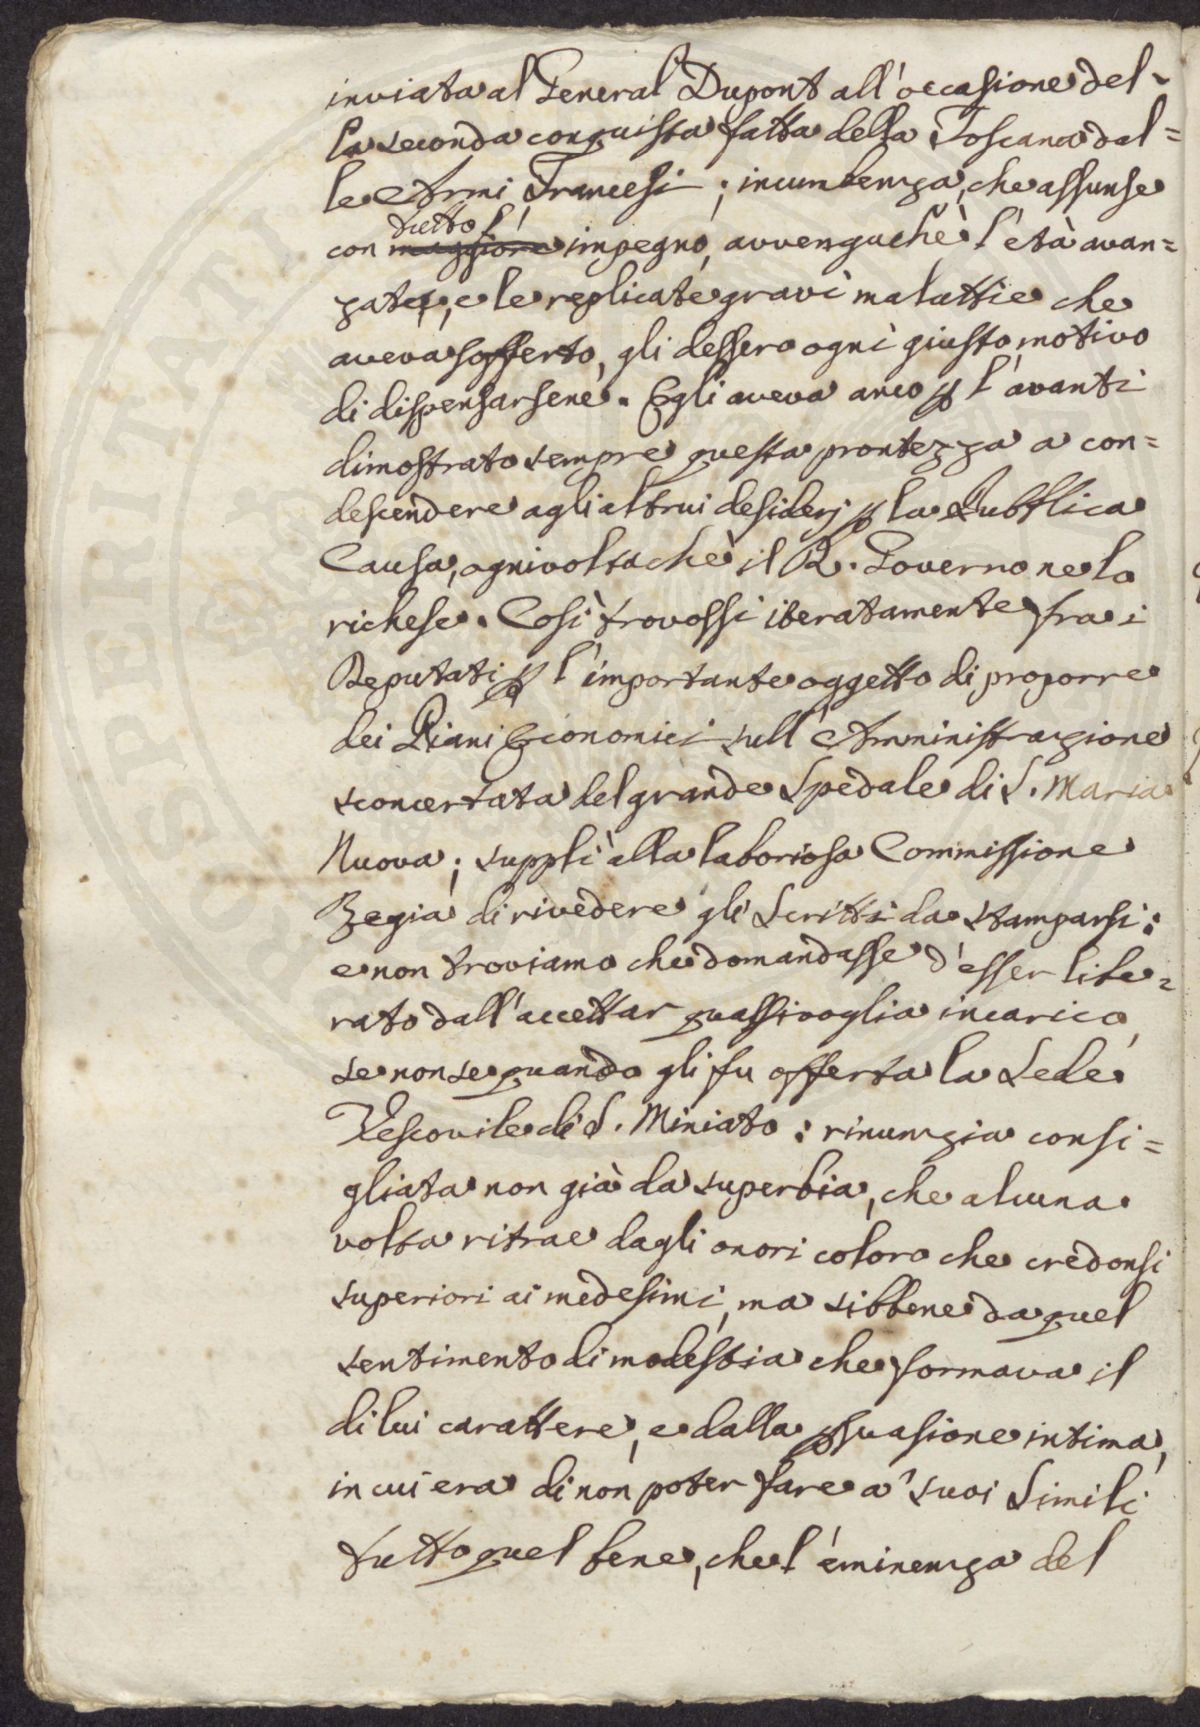 inviata al General Dupont all'occasione del-
la seconda conquista fatta della Toscana dal=
le Armi Francesi; incumbenza, che assunse
tutto l'
con maggiore impegno, avvengachè l'età avan=
zata, e le replicate gravi malattie che
aveva sofferto, gli dessero ogni giusto motivo
di dispensarsene. Egli aveva anco p l'avanti
dimostrato sempre questa prontezza a con=
descendere agli altrui desiderj p la Pubblica
Causa, ognivoltachè il R. Governo ne lo
richese. Così trovossi iteratamente fra i
Deputati p l'importante oggetto di proporre
dei Piani Economici sull'Amministrazione
sconcertata del grande Spedale di S. Maria
Nuova; supplì alla laboriosa Commissione
Regia di rivedere gli Scritti da stamparsi:
e non troviamo che domandasse d'esser libe=
rato dall'accettar qualsivoglia incarico,
se non se quando gli fu offerta la Sede
Vescovile di S. Miniato: rinunzia consi=
gliata non già da superbia, che alcuna
volta ritrae dagli onori coloro che credonsi
superiori ai medesimi, ma sibbene da quel
sentimento di modestia che formava il
di lui carattere, e dalla psuasione intima,
in cui era di non poter fare a' suoi Simili
tutto quel bene, che l'eminenza del
PROSPERITATI